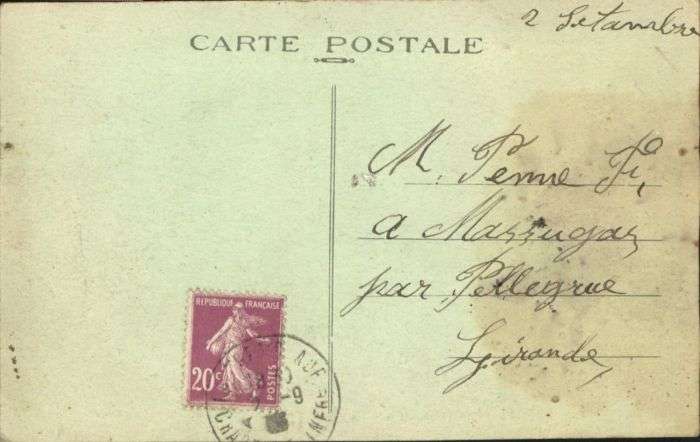 2 Setambre
CARTE POSTALE
M. Penne Fi,
a Massugas
par Pellegrue
Gironde
REPUBLIQUE FRANÇAISE
20c
POSTES